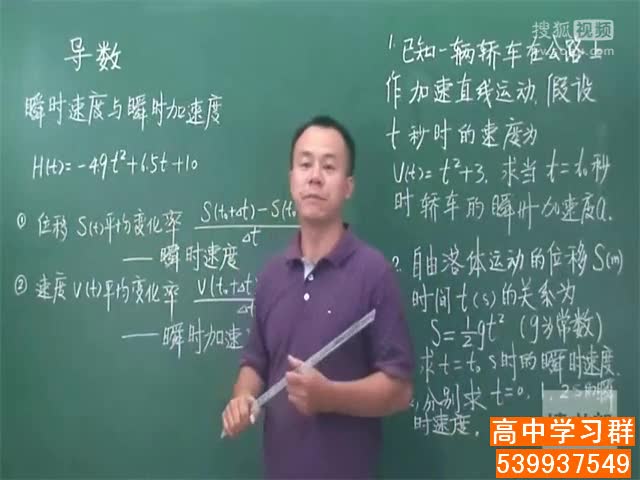 导数
瞬时速度与瞬时加速度
H(t)=-4.9t²+6.5t+10
① 位移 S(t)平均变化率 S(t₀+Δt)-S(t₀ / Δt
——瞬时速度
② 速度 V(t)平均变化率 V(t₀+Δt) / Δt
——瞬时加速
1. 已知一辆轿车在公路上
作加速直线运动,假设
t秒时的速度为
V(t)=t²+3,求当t=t₀秒
时轿车的瞬时加速度a.
2. 自由落体运动的位移S(m)
时间t(s)的关系为
S=½gt² (g为常数)
求t=t₀ s时的瞬时速度.
分别求t=0,1,2 s的瞬
时速度.
搜狐视频
高中学习群
539937549